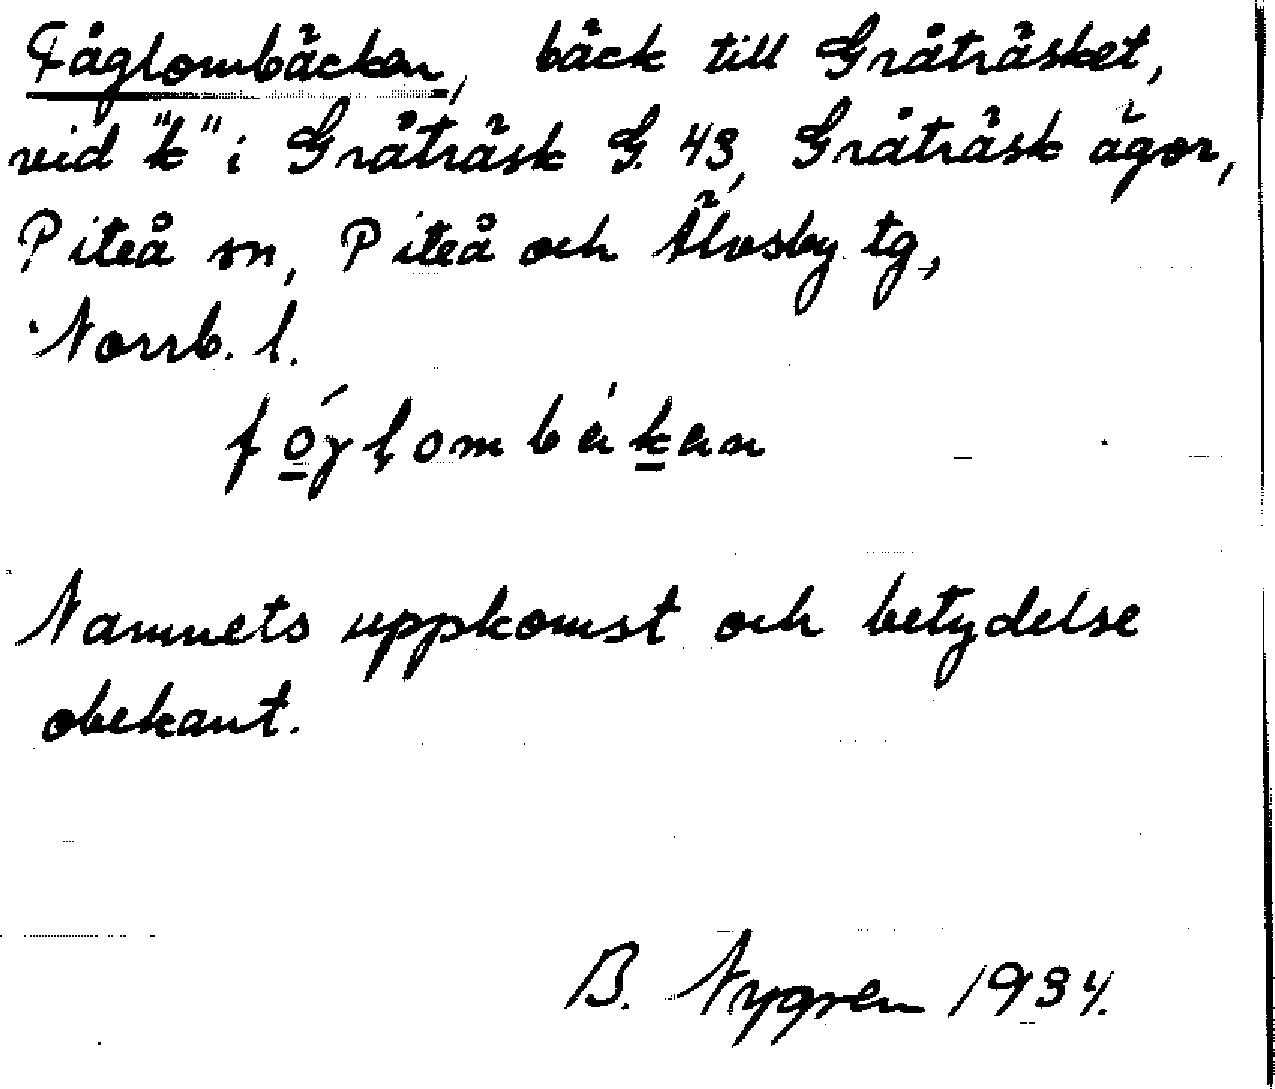 Fåglombäcken, bäck till Gråträsket,
vid "k" i Gråträsk G. 43, Gråträsk ägor,
Piteå sn, Piteå och Älvsby tg.,
Norrb. l.
fóγlombäkan
Namnets uppkomst och betydelse
obekant.
B. Nygren 1934.